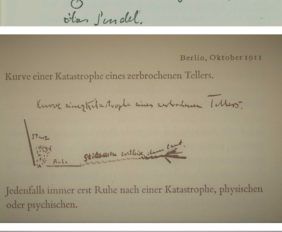 das Pendel.
Berlin, Oktober 1911
Kurve einer Katastrophe eines zerbrochenen Tellers.
Kurve einer Katastrophe eines zerbrochenen Tellers.
Sturz
Ruhe
Jedenfalls immer erst Ruhe nach einer Katastrophe, physischen
oder psychischen.